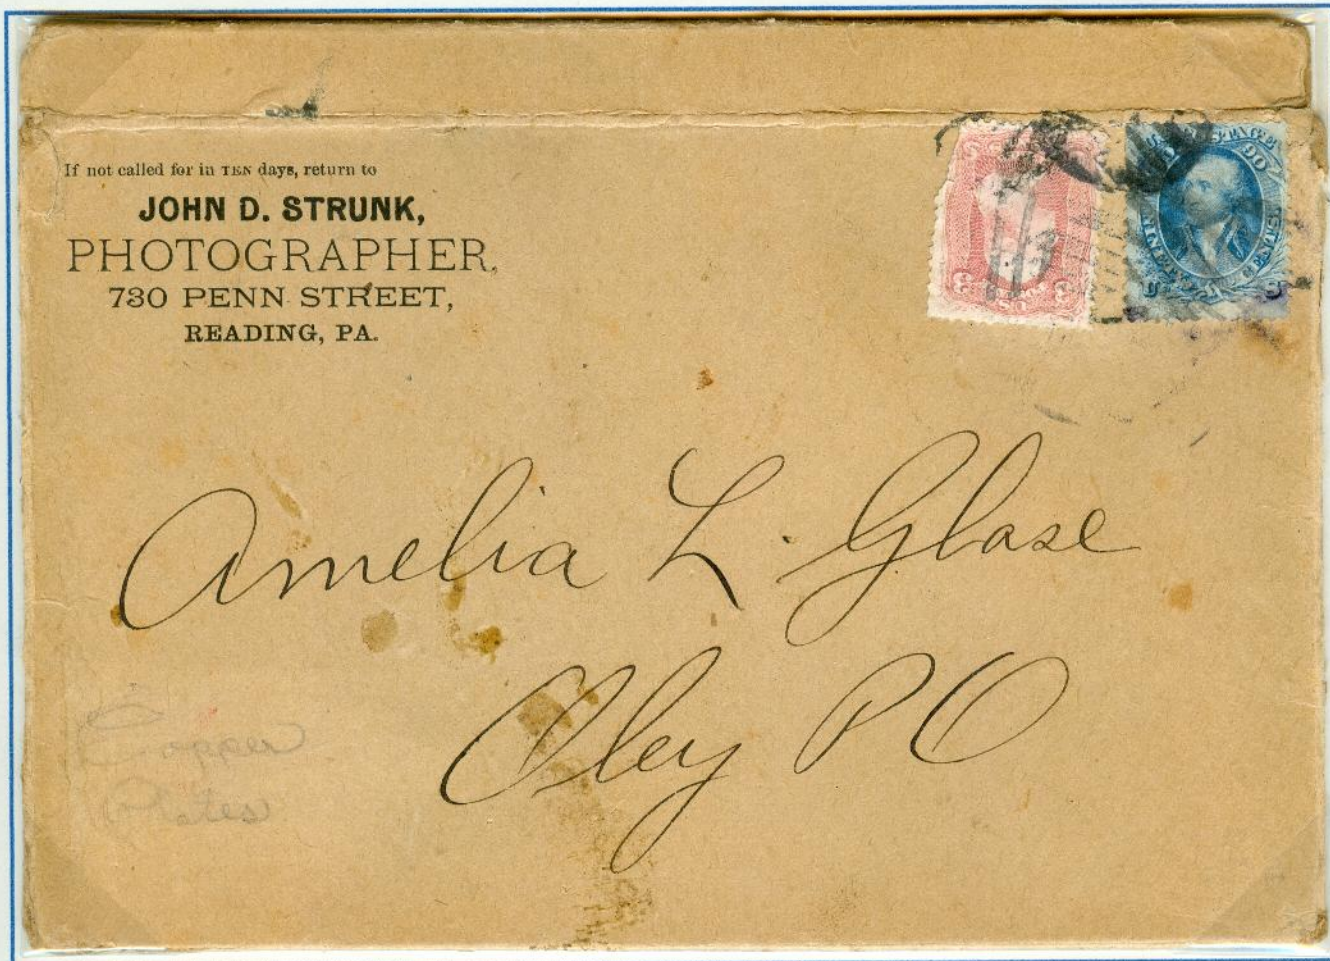 If not called for in TEN days, return to
JOHN D. STRUNK,
PHOTOGRAPHER,
730 PENN STREET,
READING, PA.
POSTAGE
90
NINETY CENTS.
U S
3 3
Amelia L. Glase
Oley PO
Copper
Plates